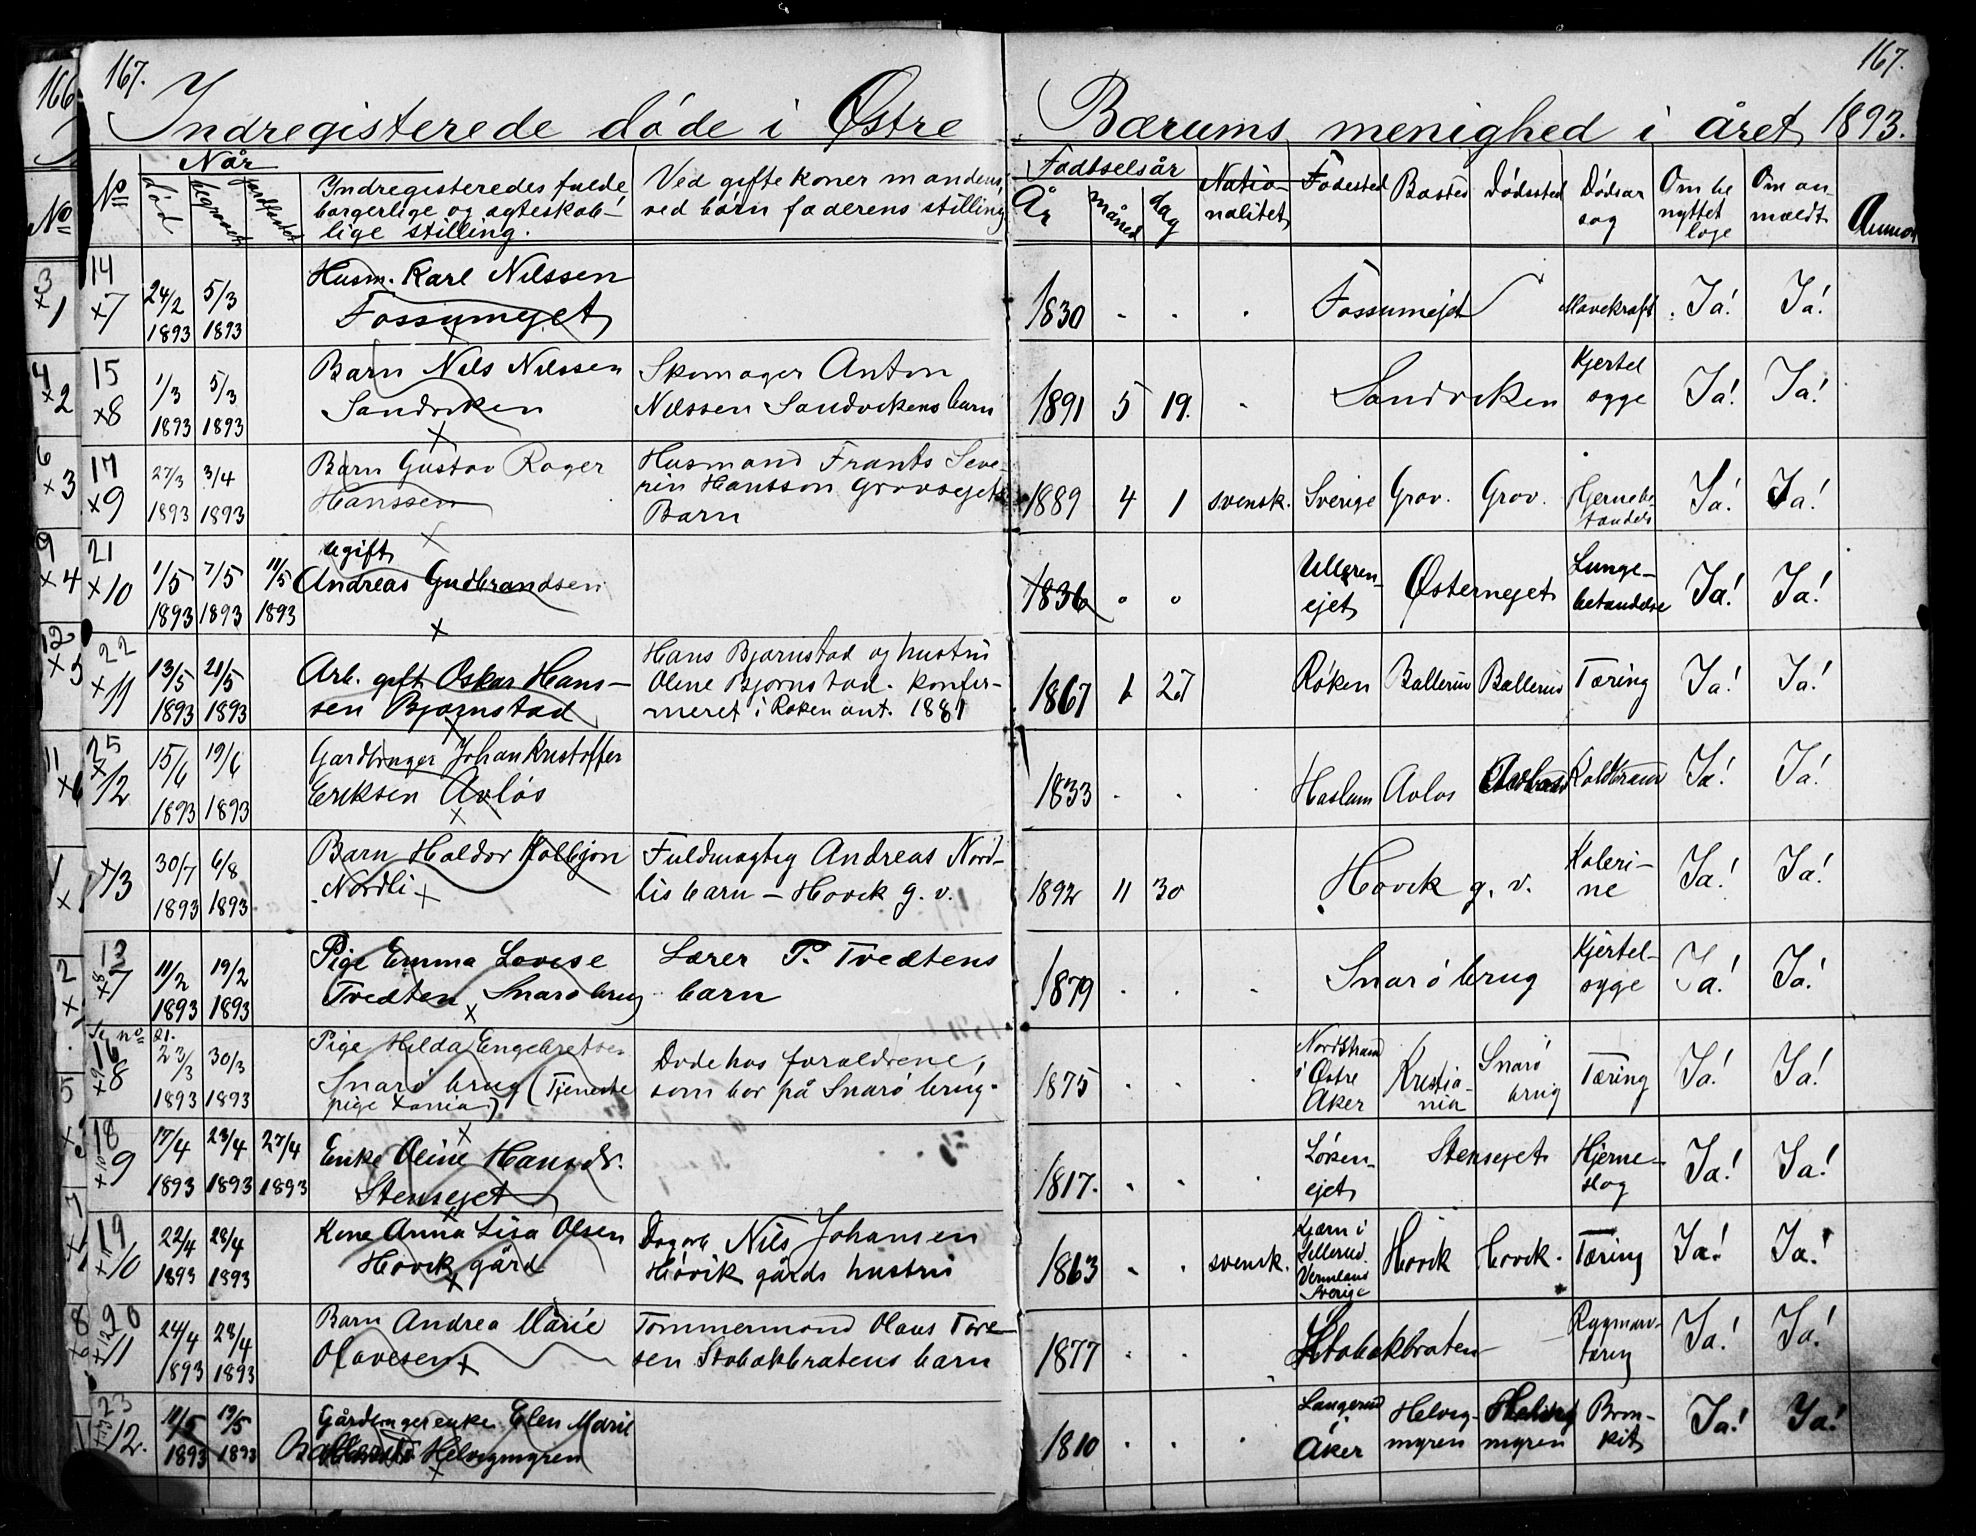 166
167.
167.
Indregisterede døde i Østre Bærums menighed i året 1893.
No
No
Når
død
begravet
jordfæstet
Indregisteredes fulde
borgerlige og ægteskab-
lige stilling.
Ved gifte koner mandens,
ved børn faderens stilling
Fødselsår
År
måned
dag
Natio-
nalitet
Fødested
Bosted
Dødssted
Dødsår
sag
Om be
nyttet
læge
Om an
mældt
3
x1
14
x7
24/2
1893
5/3
1893
Husm. Karl Nilssen
Fossumejet
1830
Fossumejet
Mavekræft
Ja!
Ja!
4
x2
15
x8
1/3
1893
5/3
1893
Barn Nils Nilssen
Sandviken
Skomager Anton
Nilssen Sandvikens barn
1891
5
19.
Sandviken
Kjertel
syge
Ja!
Ja!
6
x3
17
x9
27/3
1893
3/4
1893
Barn Gustav Roger
Hanssen
Husmand Frants Seve-
rin Hansson Grovsejets
Barn
1889
4
1
svensk.
Sverige
Grov.
Grov.
Ja!
Ja!
9
x4
21
x10
1/5
1893
7/5
1893
11/5
1893
ugift
Andreas Gudbrandsen
1836
Ullern-
ejet
Østernejet
Lunge-
betændelse
Ja!
Ja!
12
x5
22
x11
13/5
1893
21/5
1893
Arb. gift Oskar Hans-
sen Bjørnstad
Hans Bjørnstad og hustru
Oline Bjørnstad. Konfir-
meret i Røken ant. 1881
1867
1
27
Røken
Ballerud
Ballerud
Tæring
Ja!
Ja!
11
x6
25
x12
15/6
1893
19/6
1893
Gardbruger Johan Kristoffer
Eriksen Avløs
1833
Haslum
Avløs
Koldbrand
Ja!
Ja!
x13
30/7
1893
6/8
1893
Barn Haldor Kolbjørn
Nordli
Fuldmægtig Andreas Nord-
lis barn – Høvik g. v.
1892
11
30
Høvik g. v.
Koleri-
ne
Ja!
Ja!
2
13
x7
11/2
1893
19/2
1893
Pige Emma Lovise
Tvedten Snarøbrug
Lærer P. Tvedtens
barn
1879
Snarøbrug
Kjertel-
syge
Ja!
Ja!
5
Se no 21.
16
x8
23/3
1893
30/3
1893
Pige Hilda Engebretsen
Snarø brug (Tjeneste
pige x.ania)
Døde hos forældrene,
som bor på Snarø brug.
1875
Nordstrand
i Østre
Aker
Kristia-
nia
Snarø
brug
Tæring
Ja!
Ja!
18
x9
17/4
1893
23/4
1893
27/4
1893
Enke Oline Hansdr.
Stensejet
1817.
Løken-
ejet
Stensejet
Hjerne-
slag
Ja!
Ja!
7
19
x10
22/4
1893
28/4
1893
Kone Anna Lisa Olsen
Høvik gård
Dagarb Nils Johansen
Høvik gårds hustru
1863
svensk.
Kjærn i
Sillerud
Vermland
Sverige
Høvik
Høvik.
Tæring
Ja!
Ja!
8
20
x11
24/4
1893
28/4
1893
Barn Andrea Marie
Olavesen
Tømmermand Olaus Tore-
sen Stabækbråtens barn
1877
Stabækbråten
Rygmarv-
tæring
Ja!
Ja!
23
12.
11/5
1893
19/5
1893
Gårdbrugerenke Elen Marie
Helvigmyren
1810
Langerud
Aker
Helvig-
myren
Helvig
myren
Bron-
kit
Ja!
Ja!